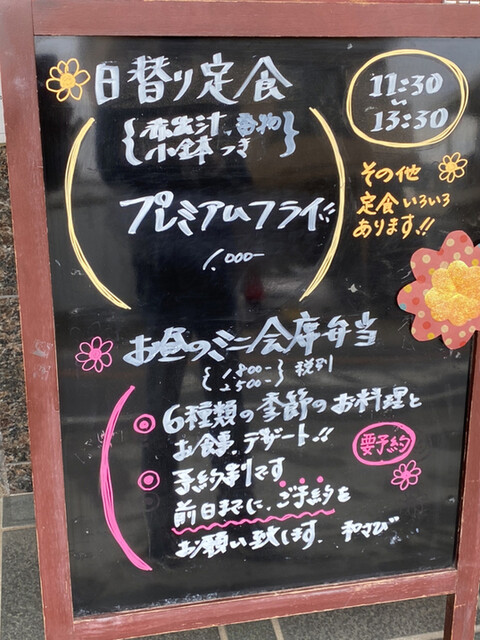 日替り定食
赤出汁、香物
小鉢つき
プレミアムフライ!!
1,000-
11:30
〜
13:30
その他
定食いろいろ
あります!!
お昼のミニ会席弁当
1800-
2500-
税別
6種類の季節のお料理と
お食事、デザート!!
予約制です
要予約
前日までに、ご予約を
お願い致します。 和さび